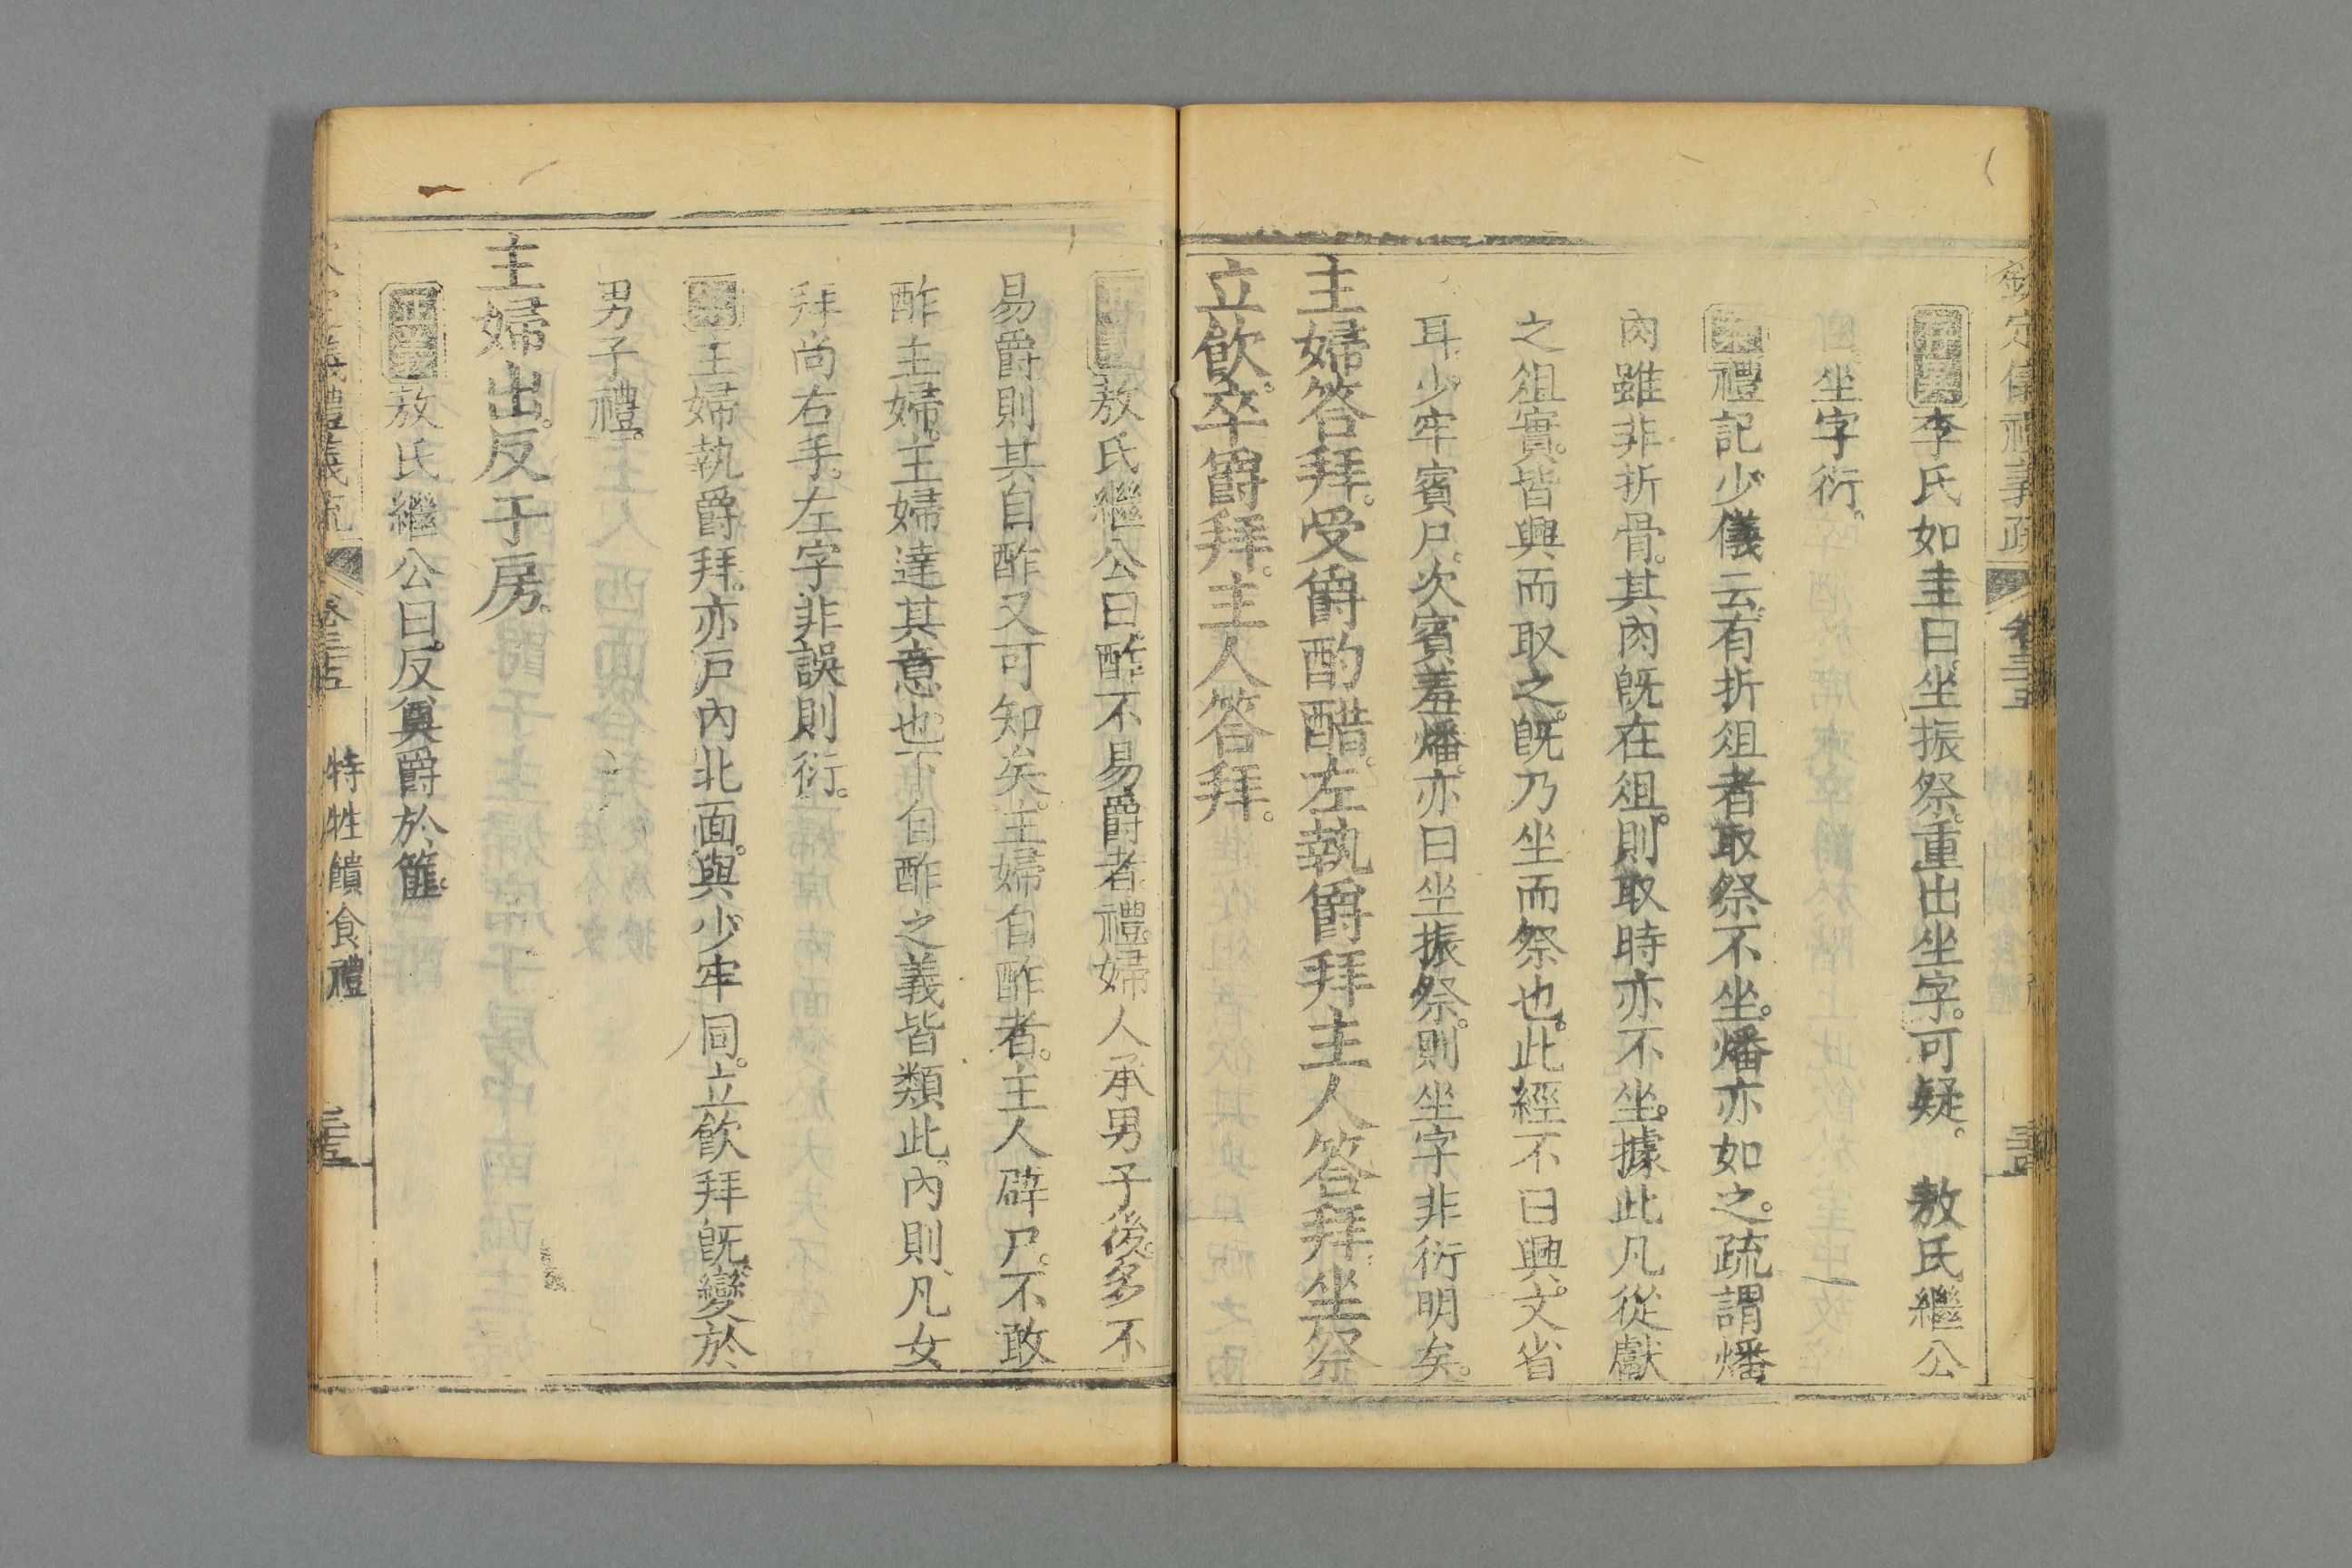 李氏如圭曰坐振祭重出坐字可疑。 敖氏繼公
曰坐字衍。
禮記少儀云有折俎者取祭不坐。燔亦如之。疏謂燔
肉雖非折骨。其肉旣在俎。則取時亦不坐。據此凡從獻
之俎實。皆興而取之。旣乃坐而祭也。此經不曰興。文省
耳。少牢賓尸。次賓羞燔。亦曰坐振祭。則坐字非衍明矣。
主婦答拜。受爵酌醋。左執爵拜。主人答拜。坐祭
立飲。卒爵拜。主人答拜。
敖氏繼公曰。酢不易爵者。禮。婦人承男子後。多不
易爵。則其自酢又可知矣。主婦自酢者。主人辟尸。不敢
酢主婦。主婦達其意也。下自酢之義皆類此。內則。凡女
拜尚右手。左字非誤則衍。
主婦執爵拜。亦戶內北面。與少牢同。立飲拜旣變於
男子禮。
主婦出。反于房。
敖氏繼公曰。反奠爵於篚。
欽定儀禮義疏 卷三十五
儀禮義疏 卷三十五 特牲饋食禮